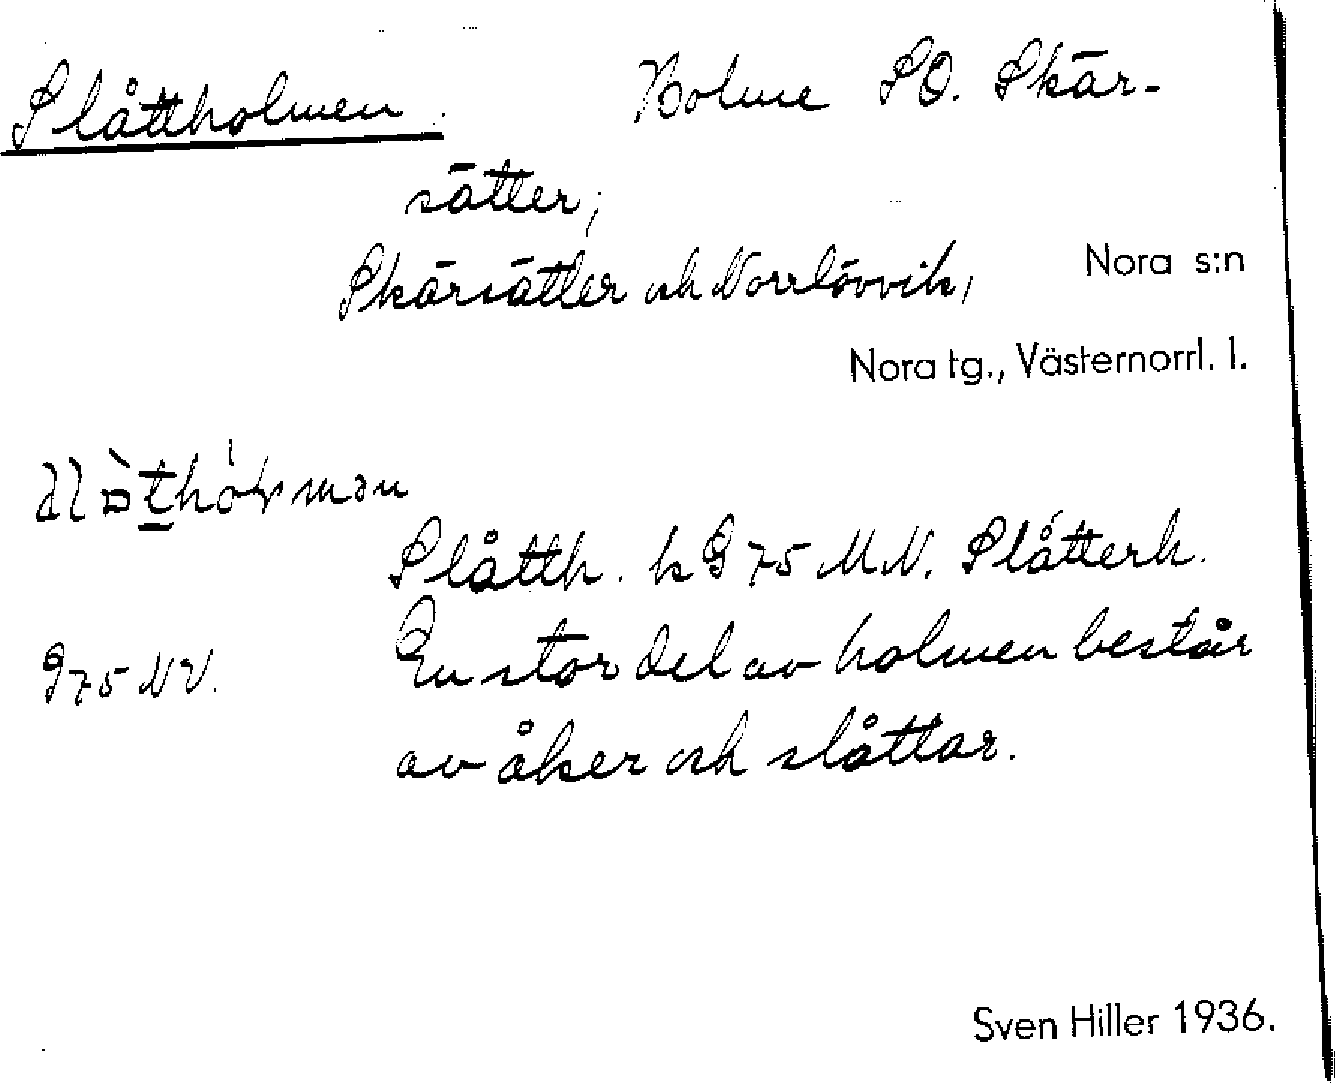 Slåttholmen. Holme SO. Skär-
sätter,
Skärsätter och Norrlövvik, Nora s:n
Nora tg., Västernorrl. l.
Slåtth. k G 75 M.N. Slåtterh.
G 75 NV. En stor del av holmen består
av åker och slåttar.
Sven Hiller 1936.